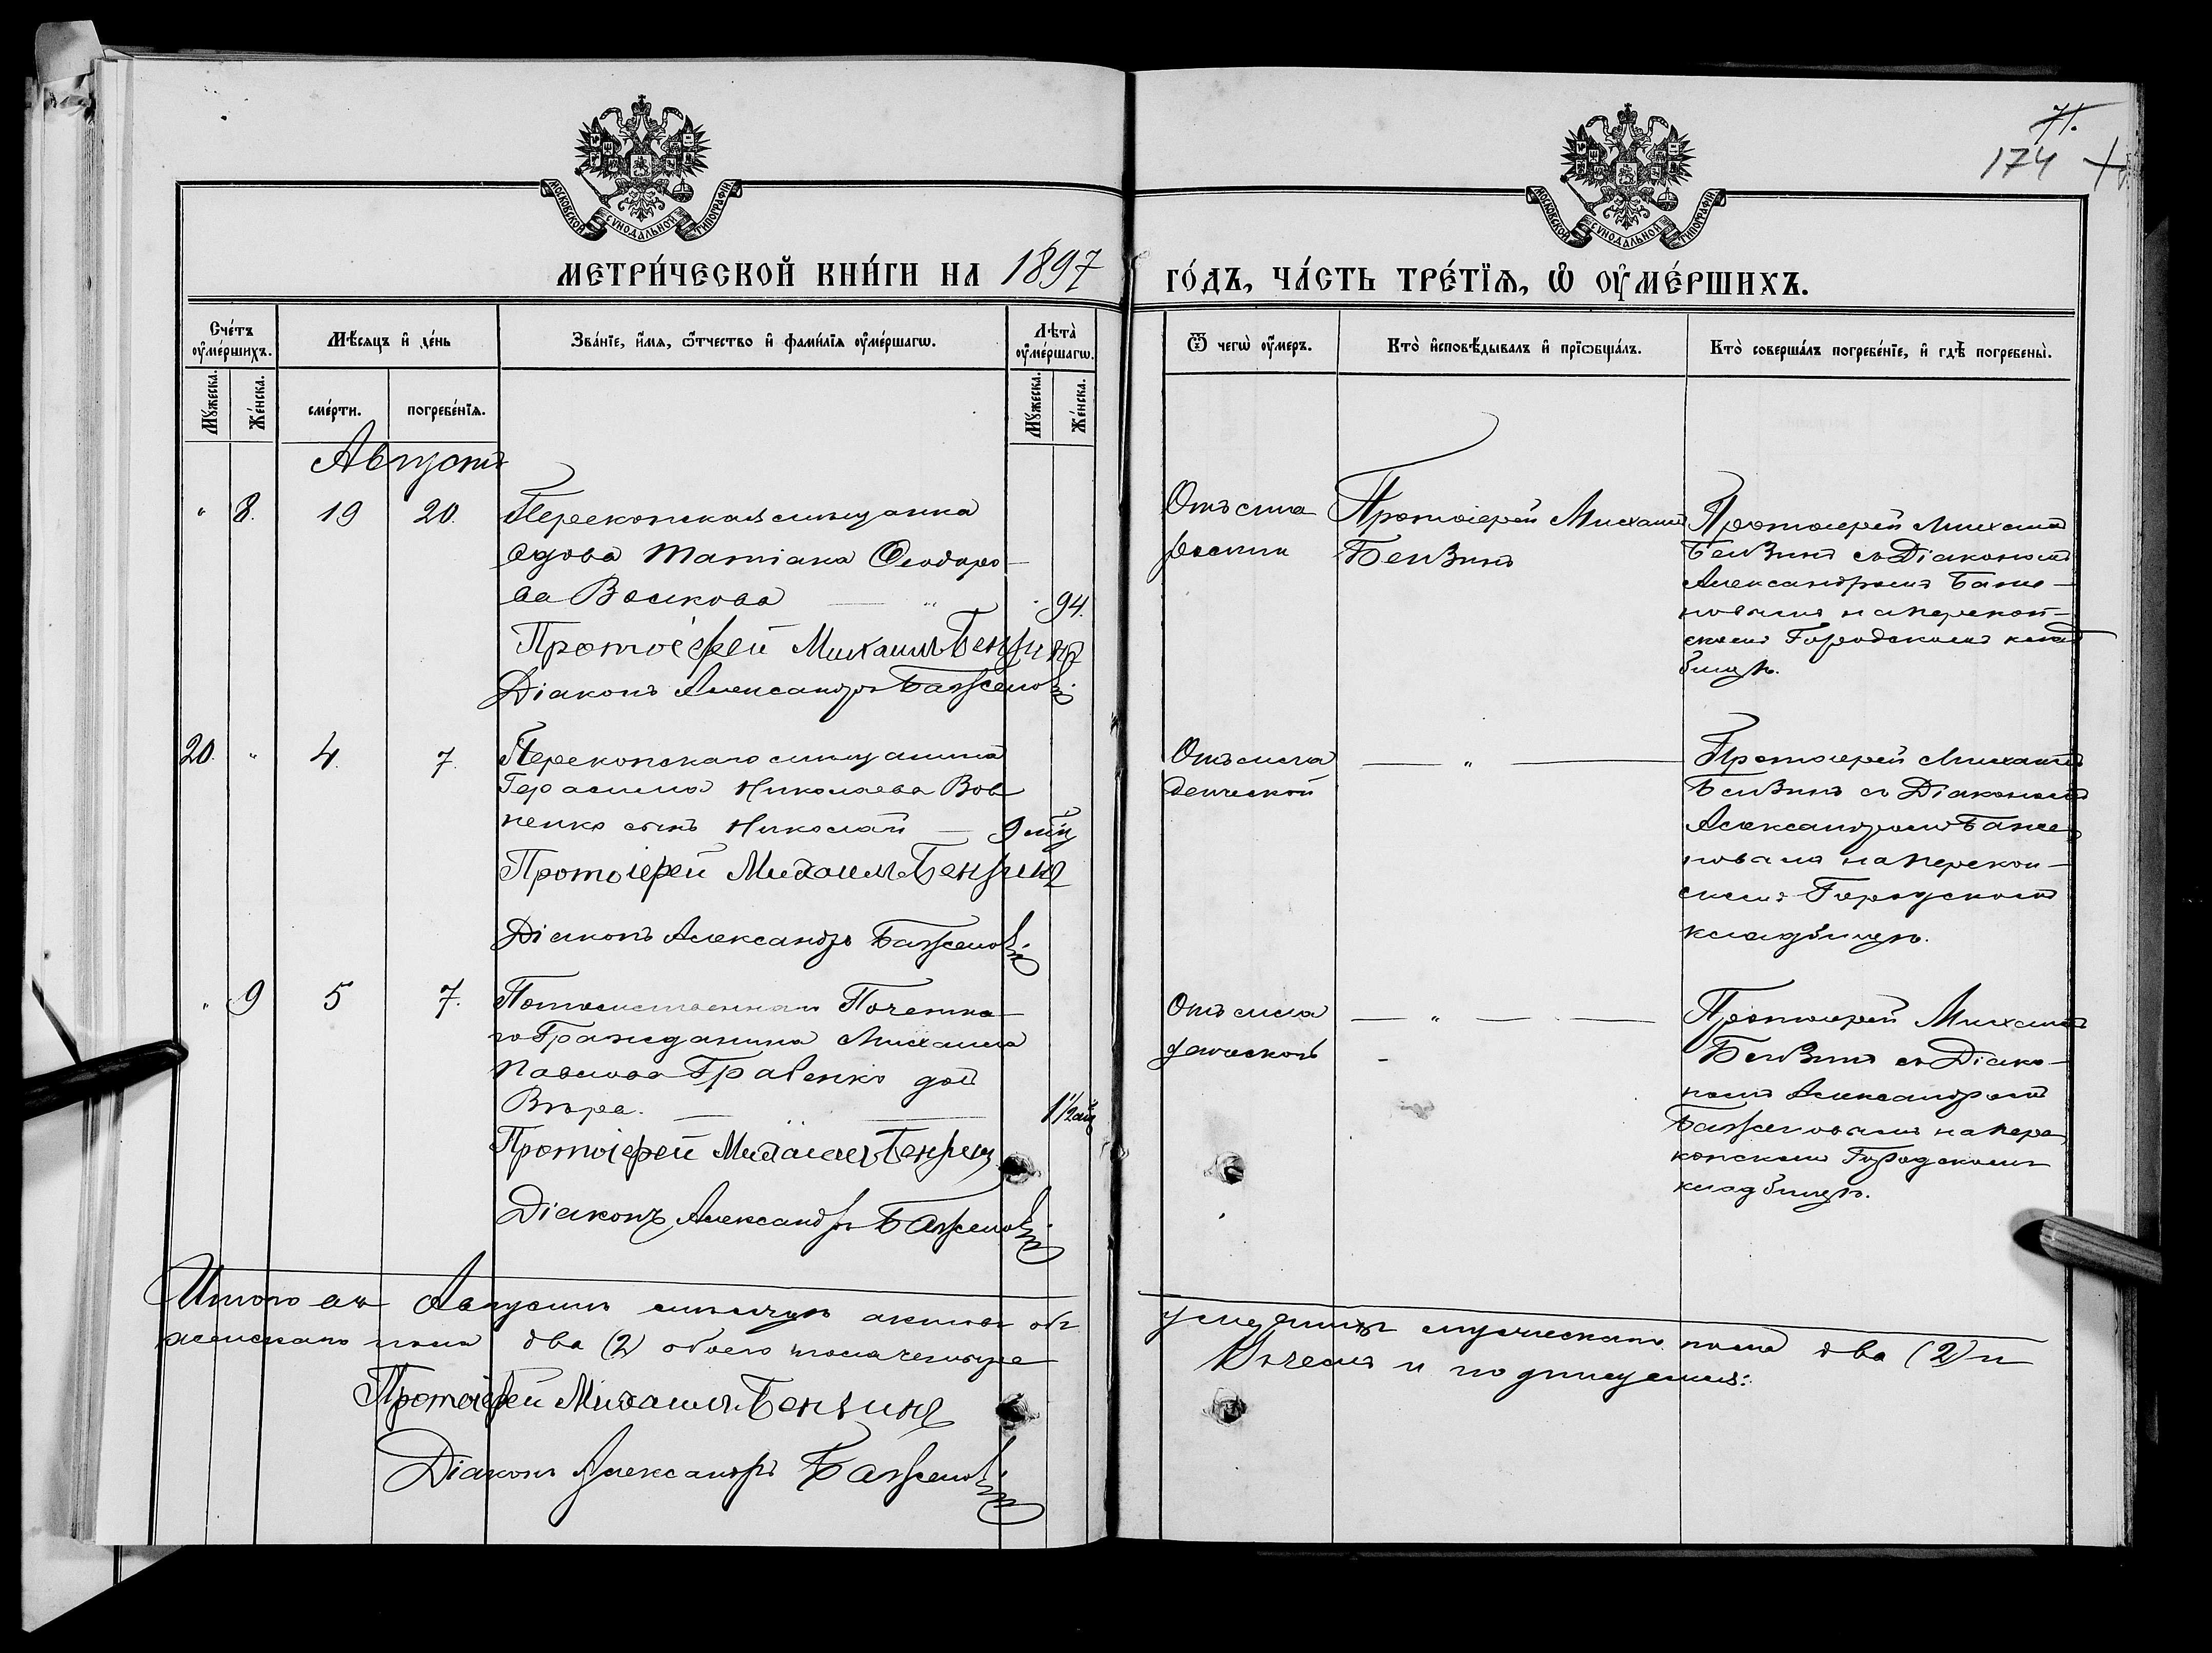 71.
174
МОСКОВСКОЙ СУНОДАЛЬНОЙ ТИПОГРАФІИ.
МОСКОВСКОЙ СУНОДАЛЬНОЙ ТИПОГРАФІИ.
МЕТРИ́ЧЕСКОЙ КНИ́ГИ НА 1897 ГО́ДЪ, ЧА́СТЬ ТРЕ́ТЇѦ, Ѡ҆ ОУ҆МЕ́РШИХЪ.
Сче́тъ оу҆ме́ршихъ.
Мѣ́сѧцъ и҆ де́нь
Зва́нїе, и҆́мѧ, ѻ҆́тчество и҆ фами́лїѧ оу҆ме́ршагѡ.
Лѣта̀ оу҆ме́ршагѡ.
Ѿ чегѡ̀ оу҆́меръ.
Кто̀ и҆сповѣ́дывалъ и҆ прїѡбща́лъ.
Кто̀ соверша́лъ погребе́нїе, и҆ гдѣ̀ погребены̀.
Мꙋ́жеска.
Же́нска.
сме́рти.
погребе́нїѧ.
Мꙋ́жеска.
Же́нска.
Августъ
" 8. 19 20. Перекопская мѣщанка
вдова Татіана Ѳеодоро-
ва Волкова " 94.
Протоіерей Михаилъ Бензинъ
Діаконъ Александръ Баженовъ
Отъ ста
рости
Протоіерей Михаилъ
Бензинъ
Протоіерей Михаилъ
Бензинъ съ Діакономъ
Александромъ Баже-
новымъ на Перекоп-
скомъ Городскомъ клад
бищѣ.
20. " 4. 7. Перекопскаго мѣщанина
Герасима Николаева Вов
ненко сынъ Николай — 9 мѣц
Протоіерей Михаилъ Бензинъ
Діаконъ Александръ Баженовъ
Отъ мла
денческой
— " —
Протоіерей Михаилъ
Бензинъ съ Діакономъ
Александромъ Баже
новымъ на Перекоп-
скомъ Городскомъ
кладбищѣ.
" 9 5 7. Потомственнаго Почетна-
го Гражданина Михаила
Павлова Гравенко дочь
Вѣра. 1½
Протоіерей Михаилъ Бензинъ
Діаконъ Александръ Баженовъ
Отъ мла
денческой
— " — —
Протоіерей Михаилъ
Бензинъ съ Діако-
номъ Александромъ
Баженовымъ на Пере
копскомъ Городскомъ
кладбищѣ.
Итого въ Августѣ мѣсяцѣ объ умершихъ мужескаго пола два (2) и
женскаго пола два (2) обоего пола четыре
Протоіерей Михаилъ Бензинъ
Діаконъ Александръ Баженовъ